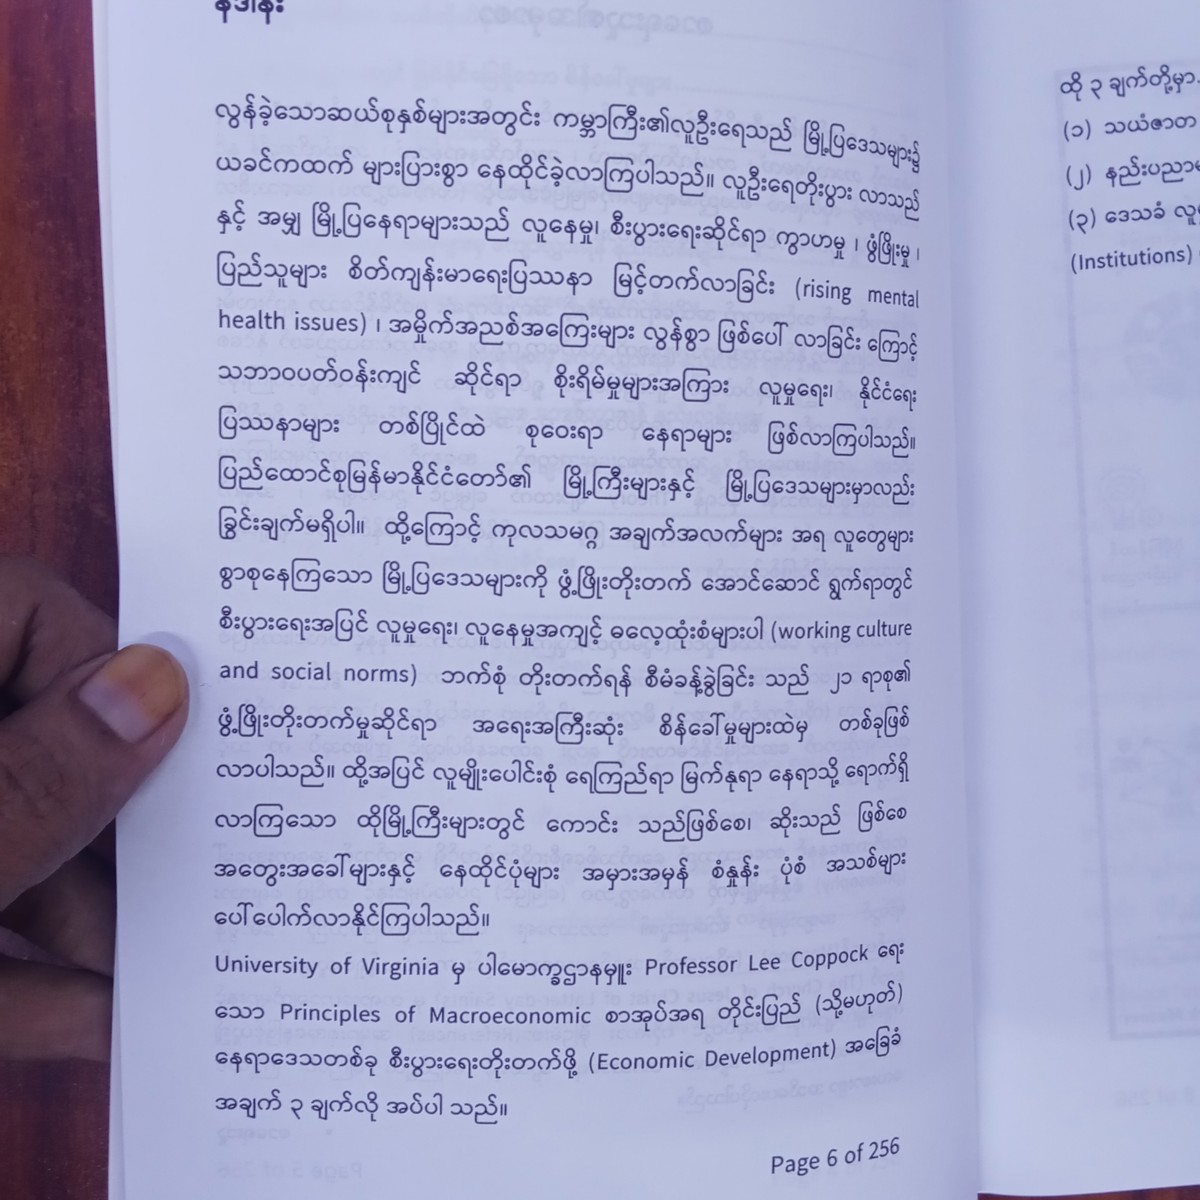 နိဒါန်း
လွန်ခဲ့သောဆယ်စုနှစ်များအတွင်း ကမ္ဘာကြီး၏လူဦးရေသည် မြို့ပြဒေသများ၌
ယခင်ကထက် များပြားစွာ နေထိုင်ခဲ့လာကြပါသည်။ လူဦးရေတိုးပွား လာသည်
နှင့် အမျှ မြို့ပြနေရာများသည် လူနေမှု၊ စီးပွားရေးဆိုင်ရာ ကွာဟမှု ၊ ဖွံဖြိုးမှု ၊
ပြည်သူများ စိတ်ကျန်းမာရေးပြဿနာ မြင့်တက်လာခြင်း (rising mental
health issues) ၊ အမှိုက်အညစ်အကြေးများ လွန်စွာ ဖြစ်ပေါ် လာခြင်း ကြောင့်
သဘာဝပတ်ဝန်းကျင် ဆိုင်ရာ စိုးရိမ်မှုများအကြား လူမှုရေး၊ နိုင်ငံရေး
ပြဿနာများ တစ်ပြိုင်ထဲ စုဝေးရာ နေရာများ ဖြစ်လာကြပါသည်။
ပြည်ထောင်စုမြန်မာနိုင်ငံတော်၏ မြို့ကြီးများနှင့် မြို့ပြဒေသများမှာလည်း
ခြွင်းချက်မရှိပါ။ ထို့ကြောင့် ကုလသမဂ္ဂ အချက်အလက်များ အရ လူတွေများ
စွာစုနေကြသော မြို့ပြဒေသများကို ဖွံ့ဖြိုးတိုးတက် အောင်ဆောင် ရွက်ရာတွင်
စီးပွားရေးအပြင် လူမှုရေး၊ လူနေမှုအကျင့် ဓလေ့ထုံးစံများပါ (working culture
and social norms) ဘက်စုံ တိုးတက်ရန် စီမံခန့်ခွဲခြင်း သည် ၂၁ ရာစု၏
ဖွံ့ဖြိုးတိုးတက်မှုဆိုင်ရာ အရေးအကြီးဆုံး စိန်ခေါ်မှုများထဲမှ တစ်ခုဖြစ်
လာပါသည်။ ထို့အပြင် လူမျိုးပေါင်းစုံ ရေကြည်ရာ မြက်နုရာ နေရာသို့ ရောက်ရှိ
လာကြသော ထိုမြို့ကြီးများတွင် ကောင်း သည်ဖြစ်စေ၊ ဆိုးသည် ဖြစ်စေ
အတွေးအခေါ်များနှင့် နေထိုင်ပုံများ အမှားအမှန် စံနှုန်း ပုံစံ အသစ်များ
ပေါ်ပေါက်လာနိုင်ကြပါသည်။
University of Virginia မှ ပါမောက္ခဌာနမှူး Professor Lee Coppock ရေး
သော Principles of Macroeconomic စာအုပ်အရ တိုင်းပြည် (သို့မဟုတ်)
နေရာဒေသတစ်ခု စီးပွားရေးတိုးတက်ဖို့ (Economic Development) အခြေခံ
အချက် ၃ ချက်လို အပ်ပါ သည်။
Page 6 of 256
ထို ၃ ချက်တို့မှာ
(၁) သယံဇာတ
(၂) နည်းပညာ
(၃) ဒေသခံ
(Institutions)